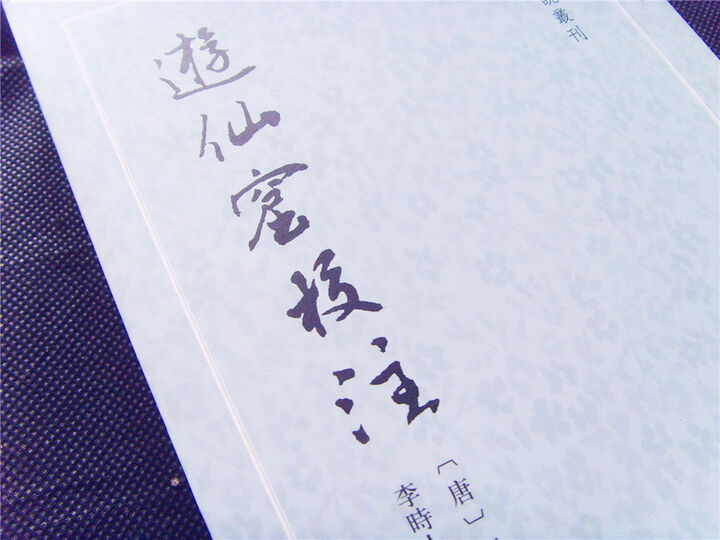 叢刊
遊仙窟校注
〔唐〕
李時